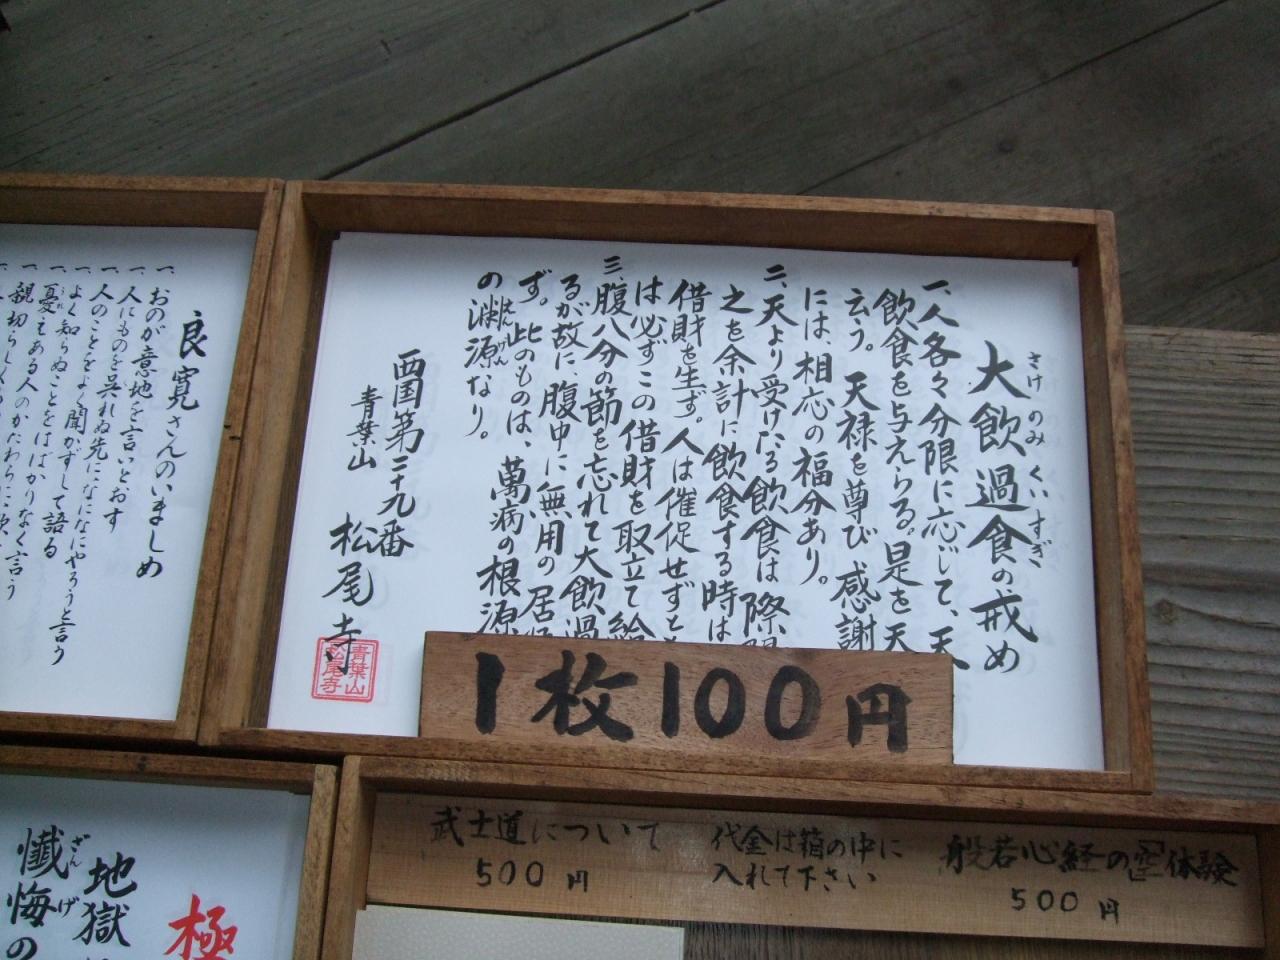 大飲過食の戒め
さけのみくいすぎ
一、人各々分限に応じて、天
飲食を与えらる。是を天
云う。天禄を尊び感謝
には、相応の福分あり。
二、天より受けたる飲食は際限
之を余計に飲食する時は
借財を生ず。人は催促せずと
は必ずこの借財を取立て給
三、腹八分の節を忘れて大飲過
るが故に、腹中に無用の居
ず。此のものは、萬病の根源
の淵源なり。
えんげん
西国第二十九番
青葉山 松尾寺
青葉山
松尾寺
1枚100円
良寛さんのいましめ
一、おのが意地を言いとおす
一、人にものを呉れぬ先になになにやろうと言う
一、人のことをよく聞かずして語る
一、よく知らぬことをはばかりなく言う
一、憂もある人のかたわらに
うれ
一、親切らしく
地獄
極
懺悔の
ざんげ
武士道について
500円
代金は箱の中に
入れて下さい
般若心経の「空」体験
500円